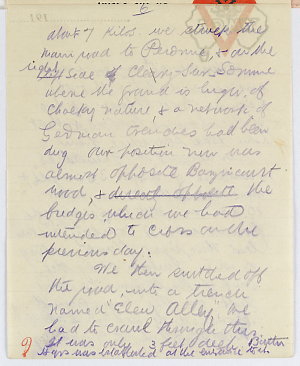 6
about 7 kilos. we struck the
main road to Peronne, & on the
right side of Clery-Sur-Somme
above the ground is high, of
chalky nature & a network of
German trenches had been
dug. Our position now was
almost opposite Bazincourt
wood, & direct opposite the
bridges which we had
intended to cross on the
previous day.
We then switched off
the road, into a trench
named "Elew Alley". We
had to crawl through this
It was only 3 feet deep.
Hqrs was established at the entrance to it